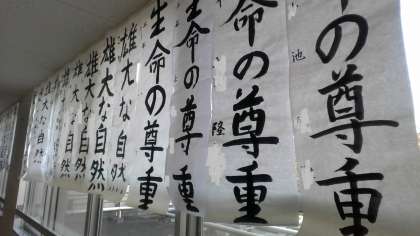 命の尊重
池
命の尊重
隆
生命の尊重
生命の尊重
雄大な自然
雄大な自然
雄大な自然
雄大な自然
雄大な自然